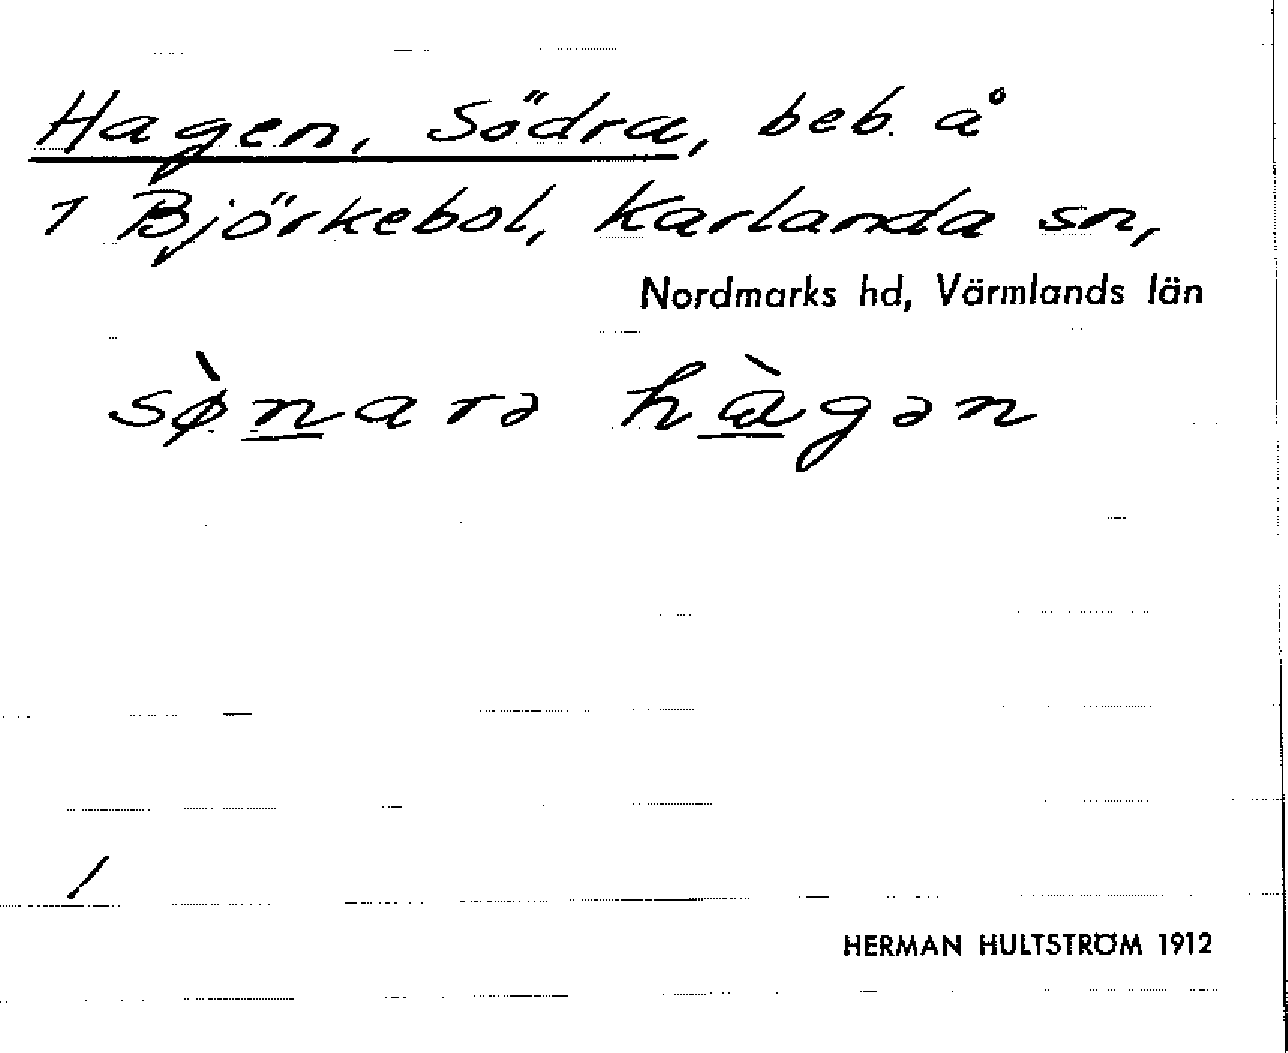 Hagen, Södra, beb. å
1 Björkebol, Karlanda sn,
Nordmarks hd, Värmlands län
sø̀narə hàgən
/
HERMAN HULTSTRÖM 1912